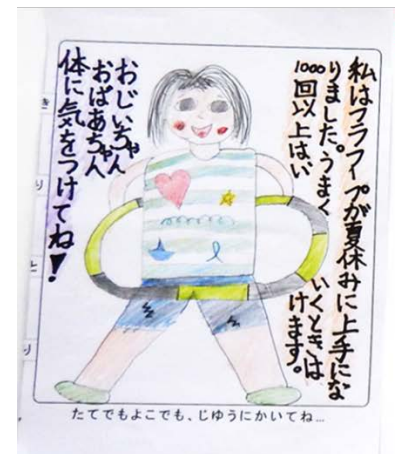 私はフラフープが夏休みに上手にな
りました。うまくいくときは
1000回以上はいけます。
おじいちゃん
おばあちゃん
体に気をつけてね!
たてでもよこでも、じゆうにかいてね…